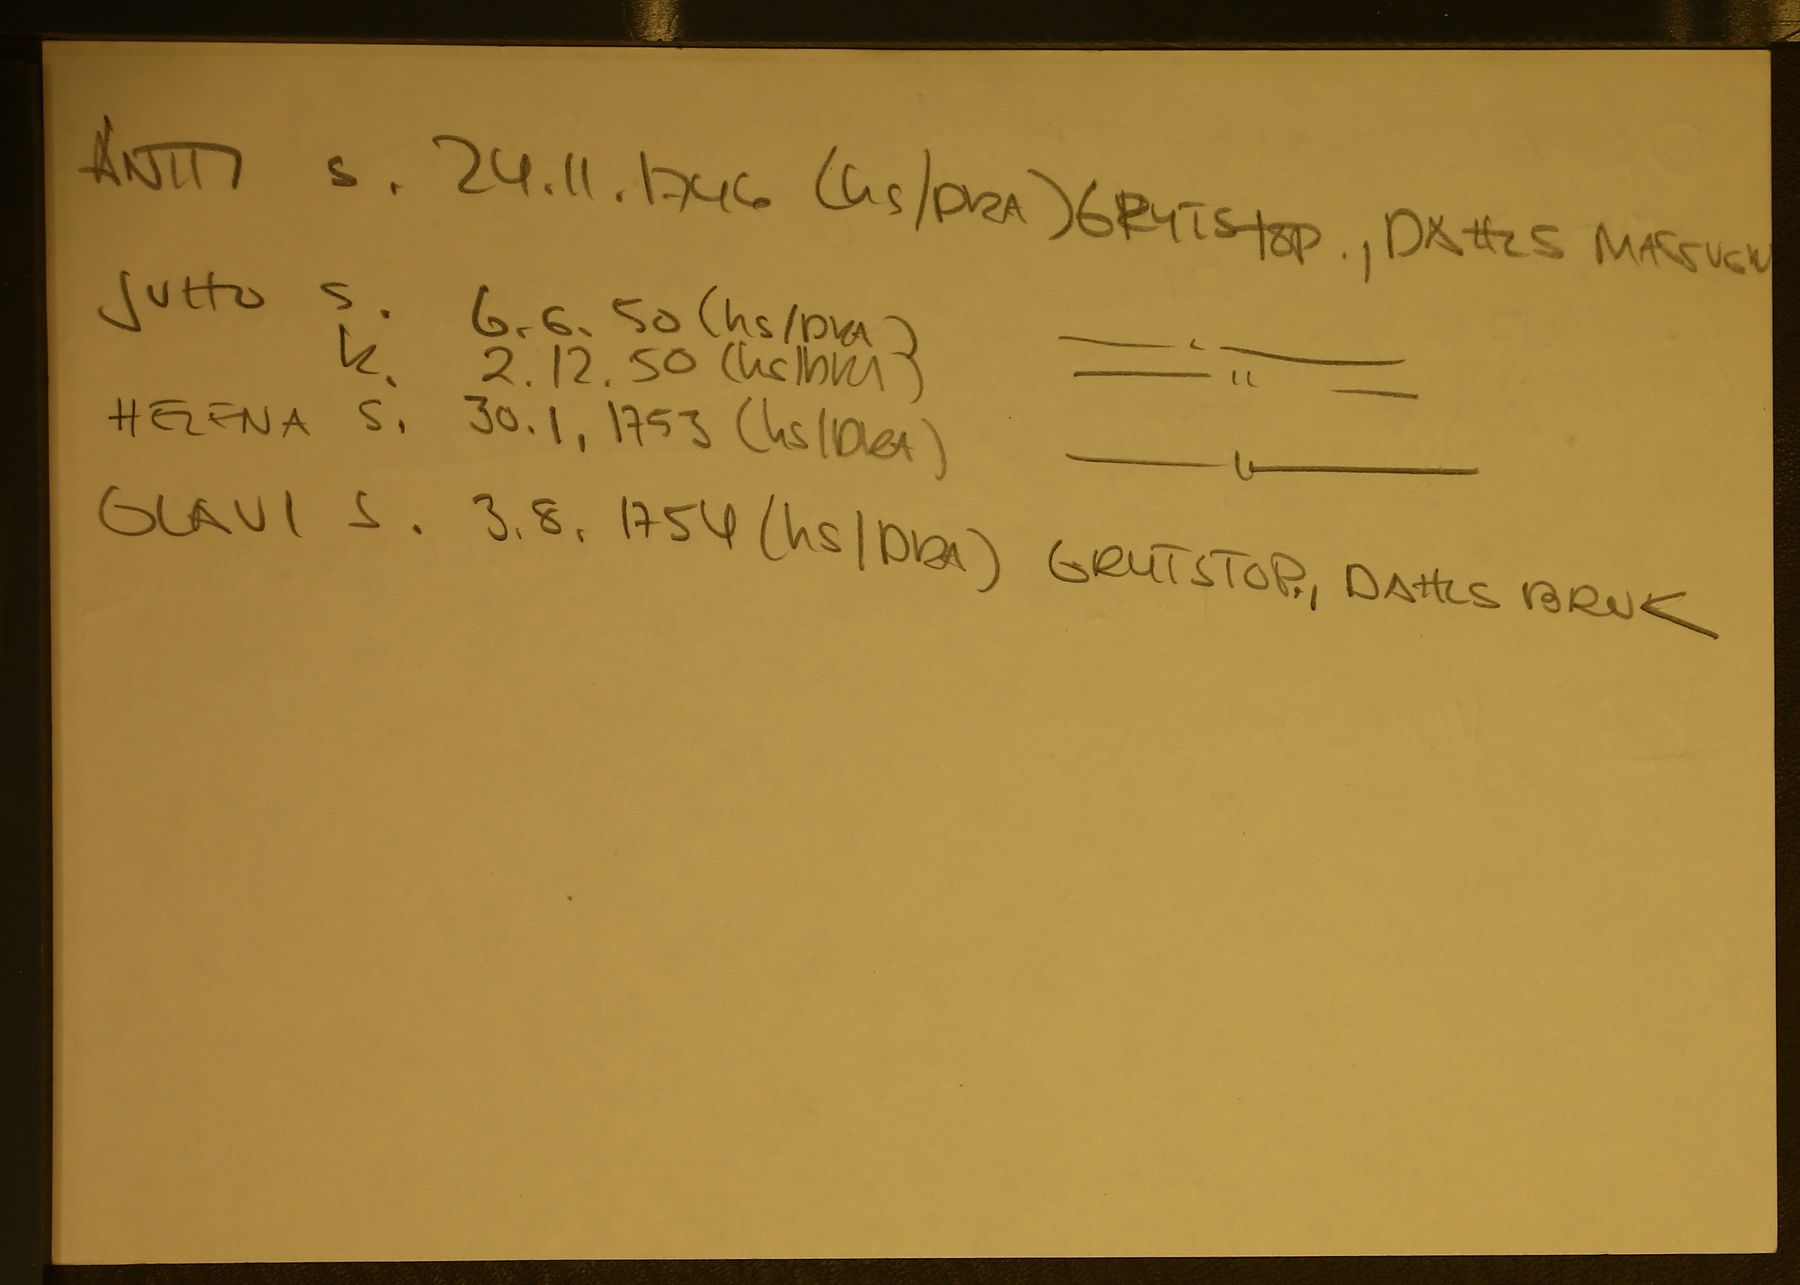 ANTTI s. 24.11.1746 (hs/DKA) GRYTSTOP., DAHLS MASSUGN
JUHO s. 6.6.50 (hs/DKA) — " —
k. 2.12.50 (hs/DKA) — " —
HELENA S. 30.1.1753 (hs/DKA) — " —
OLAVI S. 3.8.1754 (hs/DKA) GRYTSTOP., DAHLS BRUK